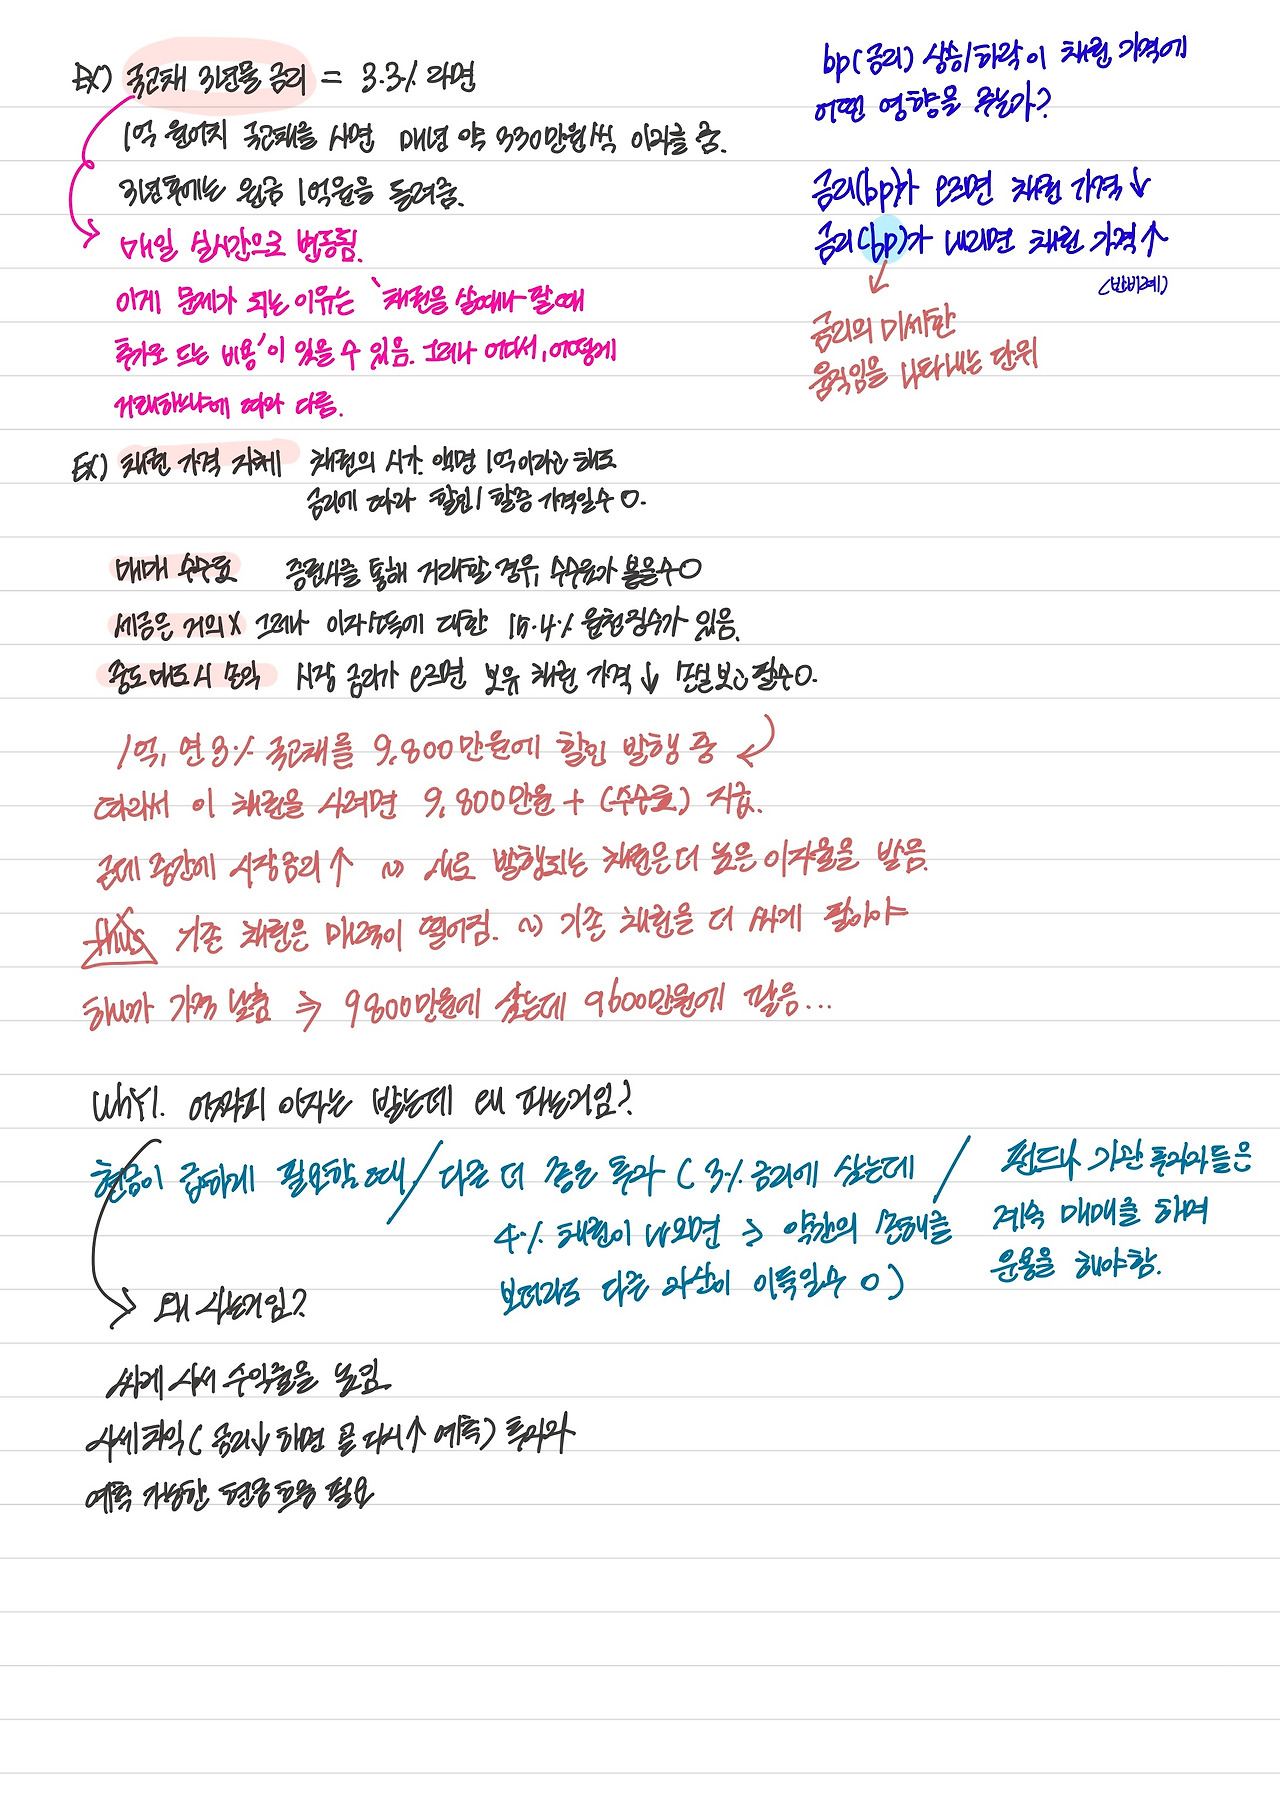 EX) 국고채 3년물 금리 = 3.3% 라면
1억 원어치 국고채를 사면 매년 약 330만원씩 이자를 줌.
3년후에는 원금 1억원을 돌려줌.
매일 실시간으로 변동됨.
이게 문제가 되는 이유는 '채권을 살때나 팔때
추가로 드는 비용'이 있을 수 있음. 그러나 어디서, 어떻게
거래하느냐에 따라 다름.
bp(금리) 상승/하락이 채권 가격에
어떤 영향을 주는가?
금리(bp)가 오르면 채권 가격↓
금리(bp)가 내리면 채권 가격↑
(반비례)
금리의 미세한
움직임을 나타내는 단위
EX) 채권 가격 자체 채권의 시가. 액면 1억이라고 해도
금리에 따라 할인/할증 가격일수 O.
매매 수수료 증권사를 통해 거래할 경우, 수수료가 붙을수O
세금은 거의X 그러나 이자소득에 대한 15.4% 원천징수가 있음.
중도매도시 손익 시장 금리가 오르면 보유 채권 가격↓ 손실보고 팔수O.
1억, 연3% 국고채를 9,800만원에 할인 발행 중
따라서 이 채권을 사려면 9,800만원 + (수수료) 지급.
근데 중간에 시장금리↑ ~) 새로 발행되는 채권은 더 높은 이자율을 받음.
thus 기존 채권은 매력이 떨어짐. ~) 기존 채권을 더 싸게 팔아야
하니까 가격 낮춤 => 9800만원에 샀는데 9600만원에 팔음...
Why!. 어차피 이자는 받는데 왜 파는거임?
현금이 급하게 필요할 때 / 다른 더 좋은 투자 (3% 금리에 샀는데
4% 채권이 나오면 -> 약간의 손해를
보더라도 다른 자산이 이득일수 O)
/ 펀드나 기관 투자자들은
계속 매매를 하며
운용을 해야함.
왜 사는거임?
싸게 사서 수익률을 높임.
시세차익 (금리↓하면 곧 다시↑ 예측) 투자자
예측 가능한 현금 흐름 필요